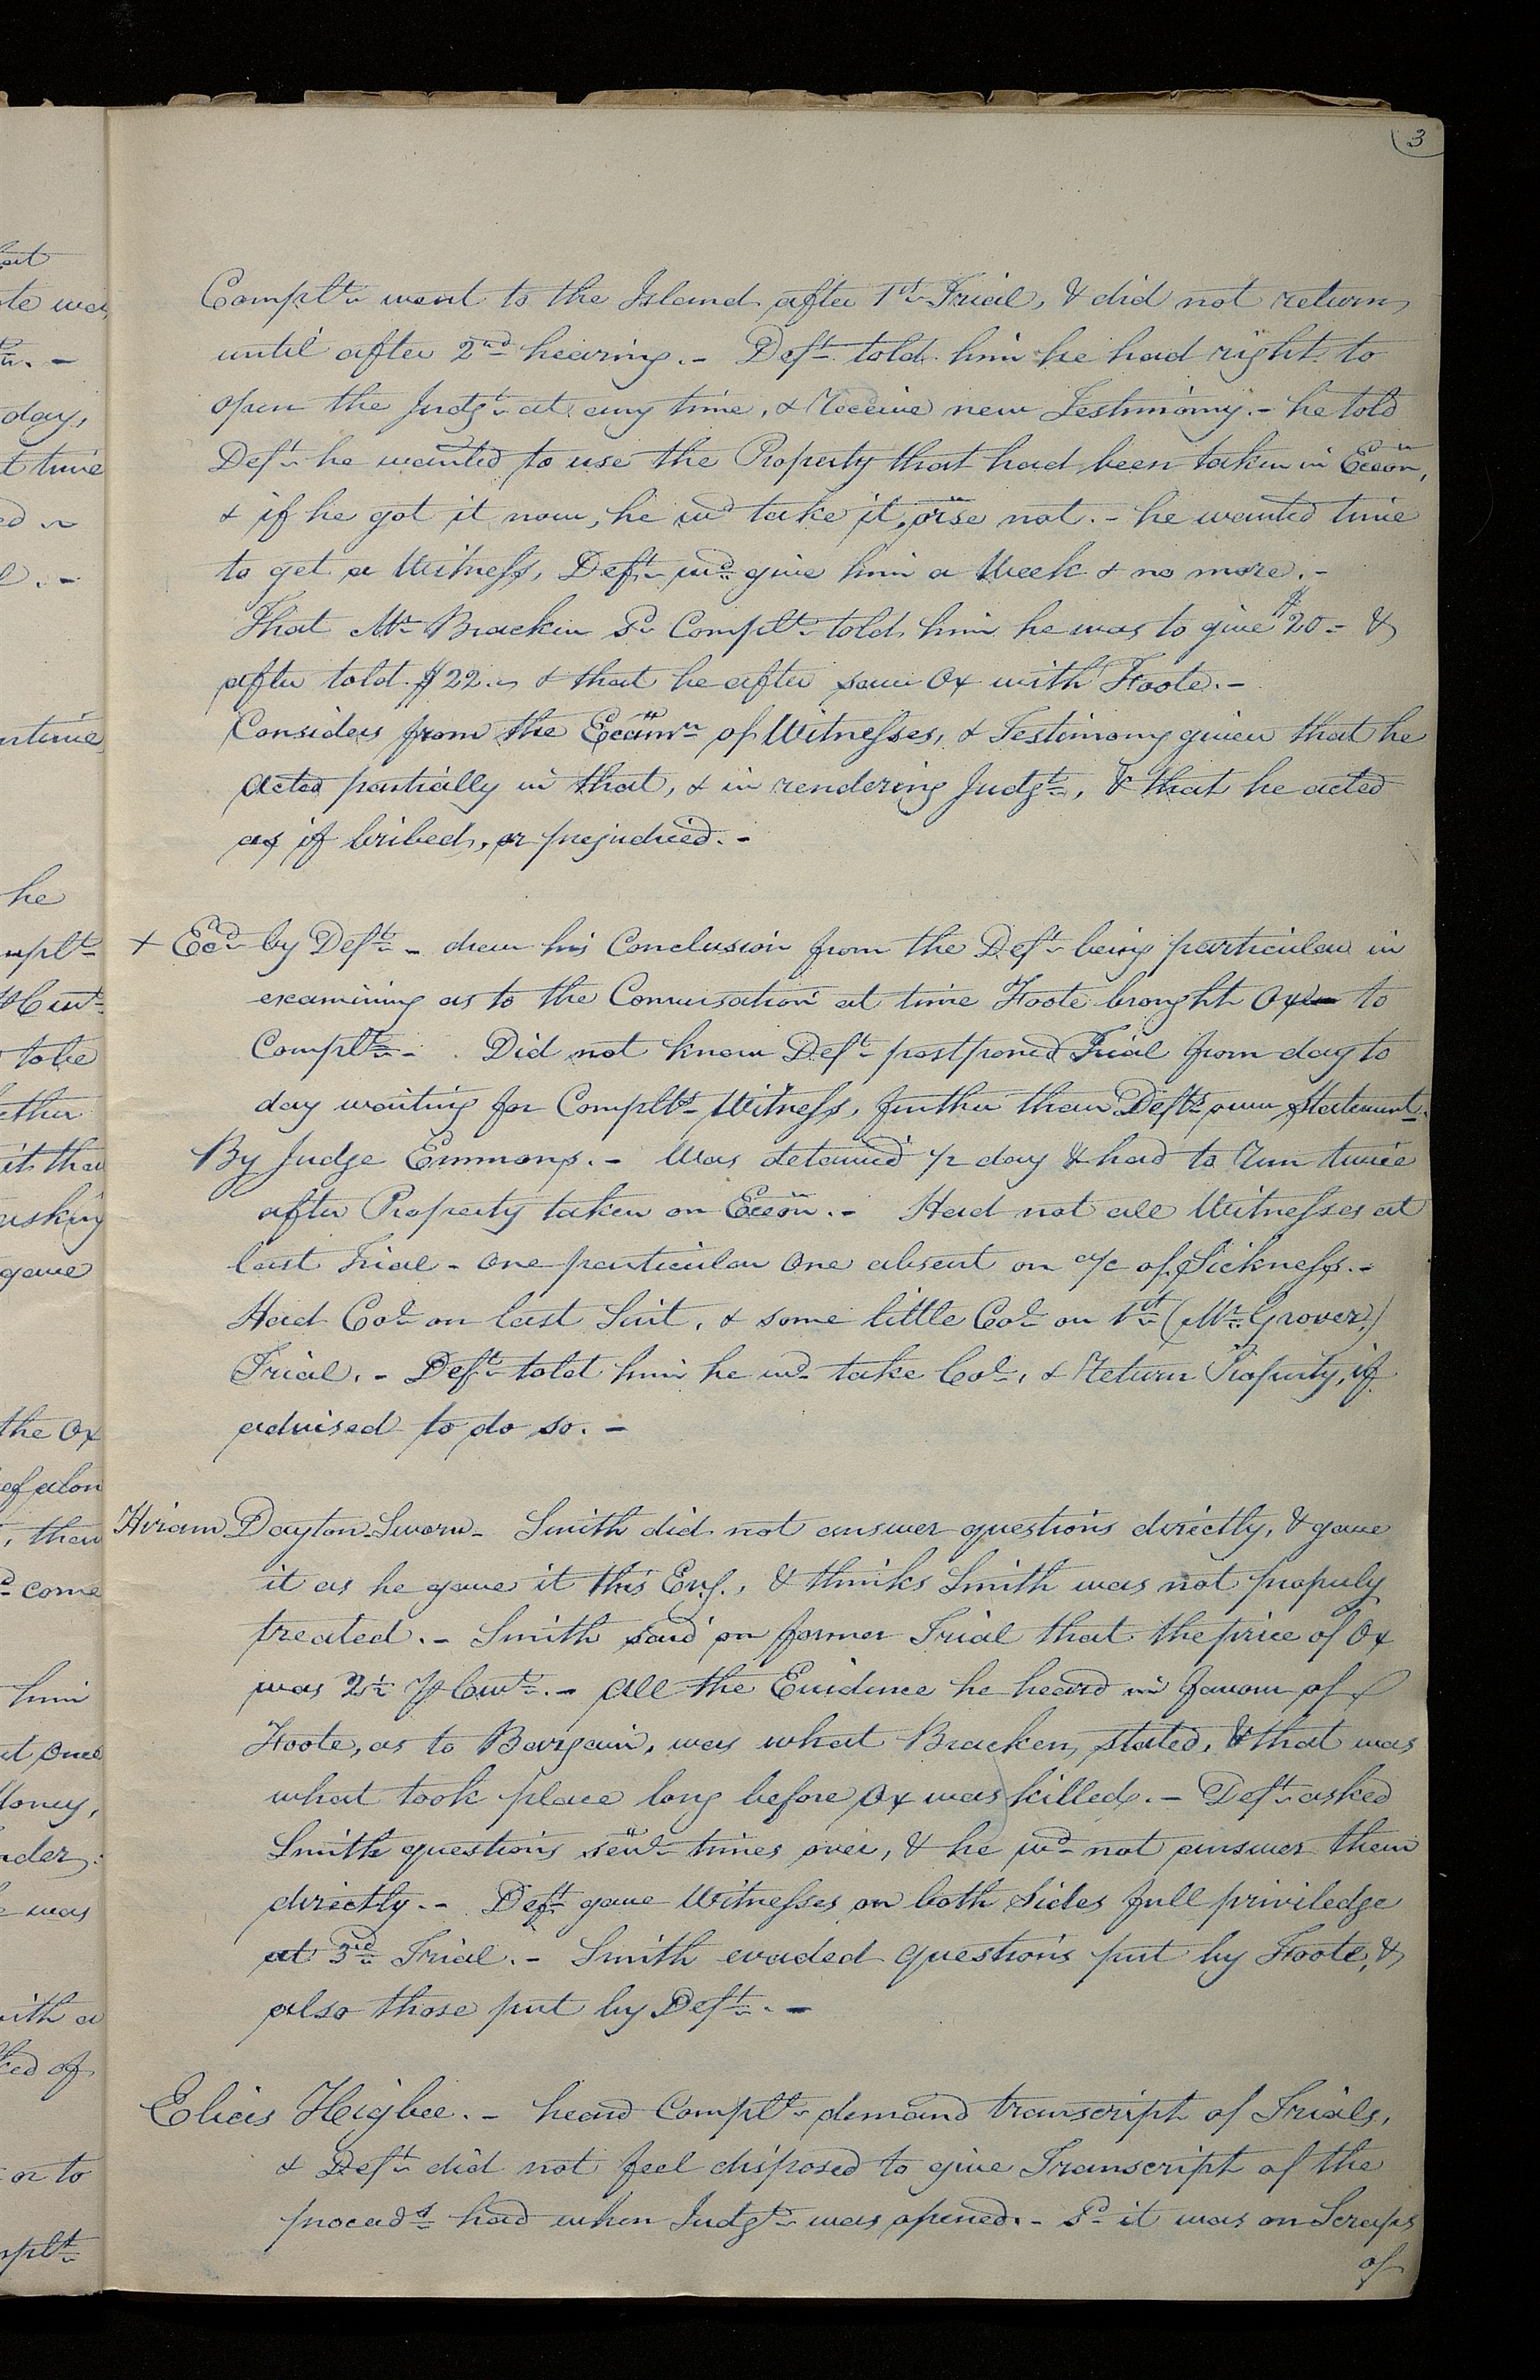 3
Complt. went to the Island after 1st Trial, & did not return
until after 2nd hearing. - Deft. told him he had right to
open the Judgt. at any time, & Receive new Testimony. - he told
Deft. he wanted to use the Property that had been taken in Ecěon,
& if he got it now, he wd take it, orse not. - he wanted time
to get a Witness, Deft. wd. give him a Week & no more. -
That Mr. Bracken Sd. Complt. told him he was to give $20 - &
after told $22. & that he after saw Ox with Foote. -
Considers from the Ecamn. of Witnesses, & Testimony given that he
acted partially in that, & in rendering Judgt., & that he acted
as if bribed, or prejudiced. -
+ Ecd. by Deft. - drew his Conclusion from the Deft. being particular in
examining as to the Conversation at time Foote brought Ox to
Complt. - . Did not know Deft. postponed Trial from day to
day waiting for Complts. Witness, further than Defts. own Statement.
By Judge Emmons. - Was detained 1/2 day & had to Run twice
after Property taken on Eceon. - Had not all Witnesses at
last Trial - one particular one absent on a/c of Sickness. -
Had Col. on last Suit, & some little Col. on 1st (Mr. Grover)
Trial. - Deft. told him he wd. take Col., & Return Property, if
advised to do so. -
Hiram Dayton Sworn - Smith did not answer questions directly, & gave
it as he gave it this Eng., & thinks Smith was not properly
treated. - Smith said on former Trial that the price of Ox
was 2½ ⅌ Cwt. - all the Evidence he heard in favour of
Foote, as to Bargain, was what Bracken stated, & that was
what took place long before Ox was killed. - Deft. asked
Smith questions sevl. times over, & he wd. not answer them
directly. - Deft. gave Witnesses on both Sides full priviledge
at 3rd Trial. - Smith evaded questions put by Foote, &
also those put by Deft. -
Elias Higbee. - heard Complt. demand transcript of Trials,
& Deft. did not feel disposed to give Transcript of the
proceads. had when Judgt. was opened. - Sd. it was on Scraps
of